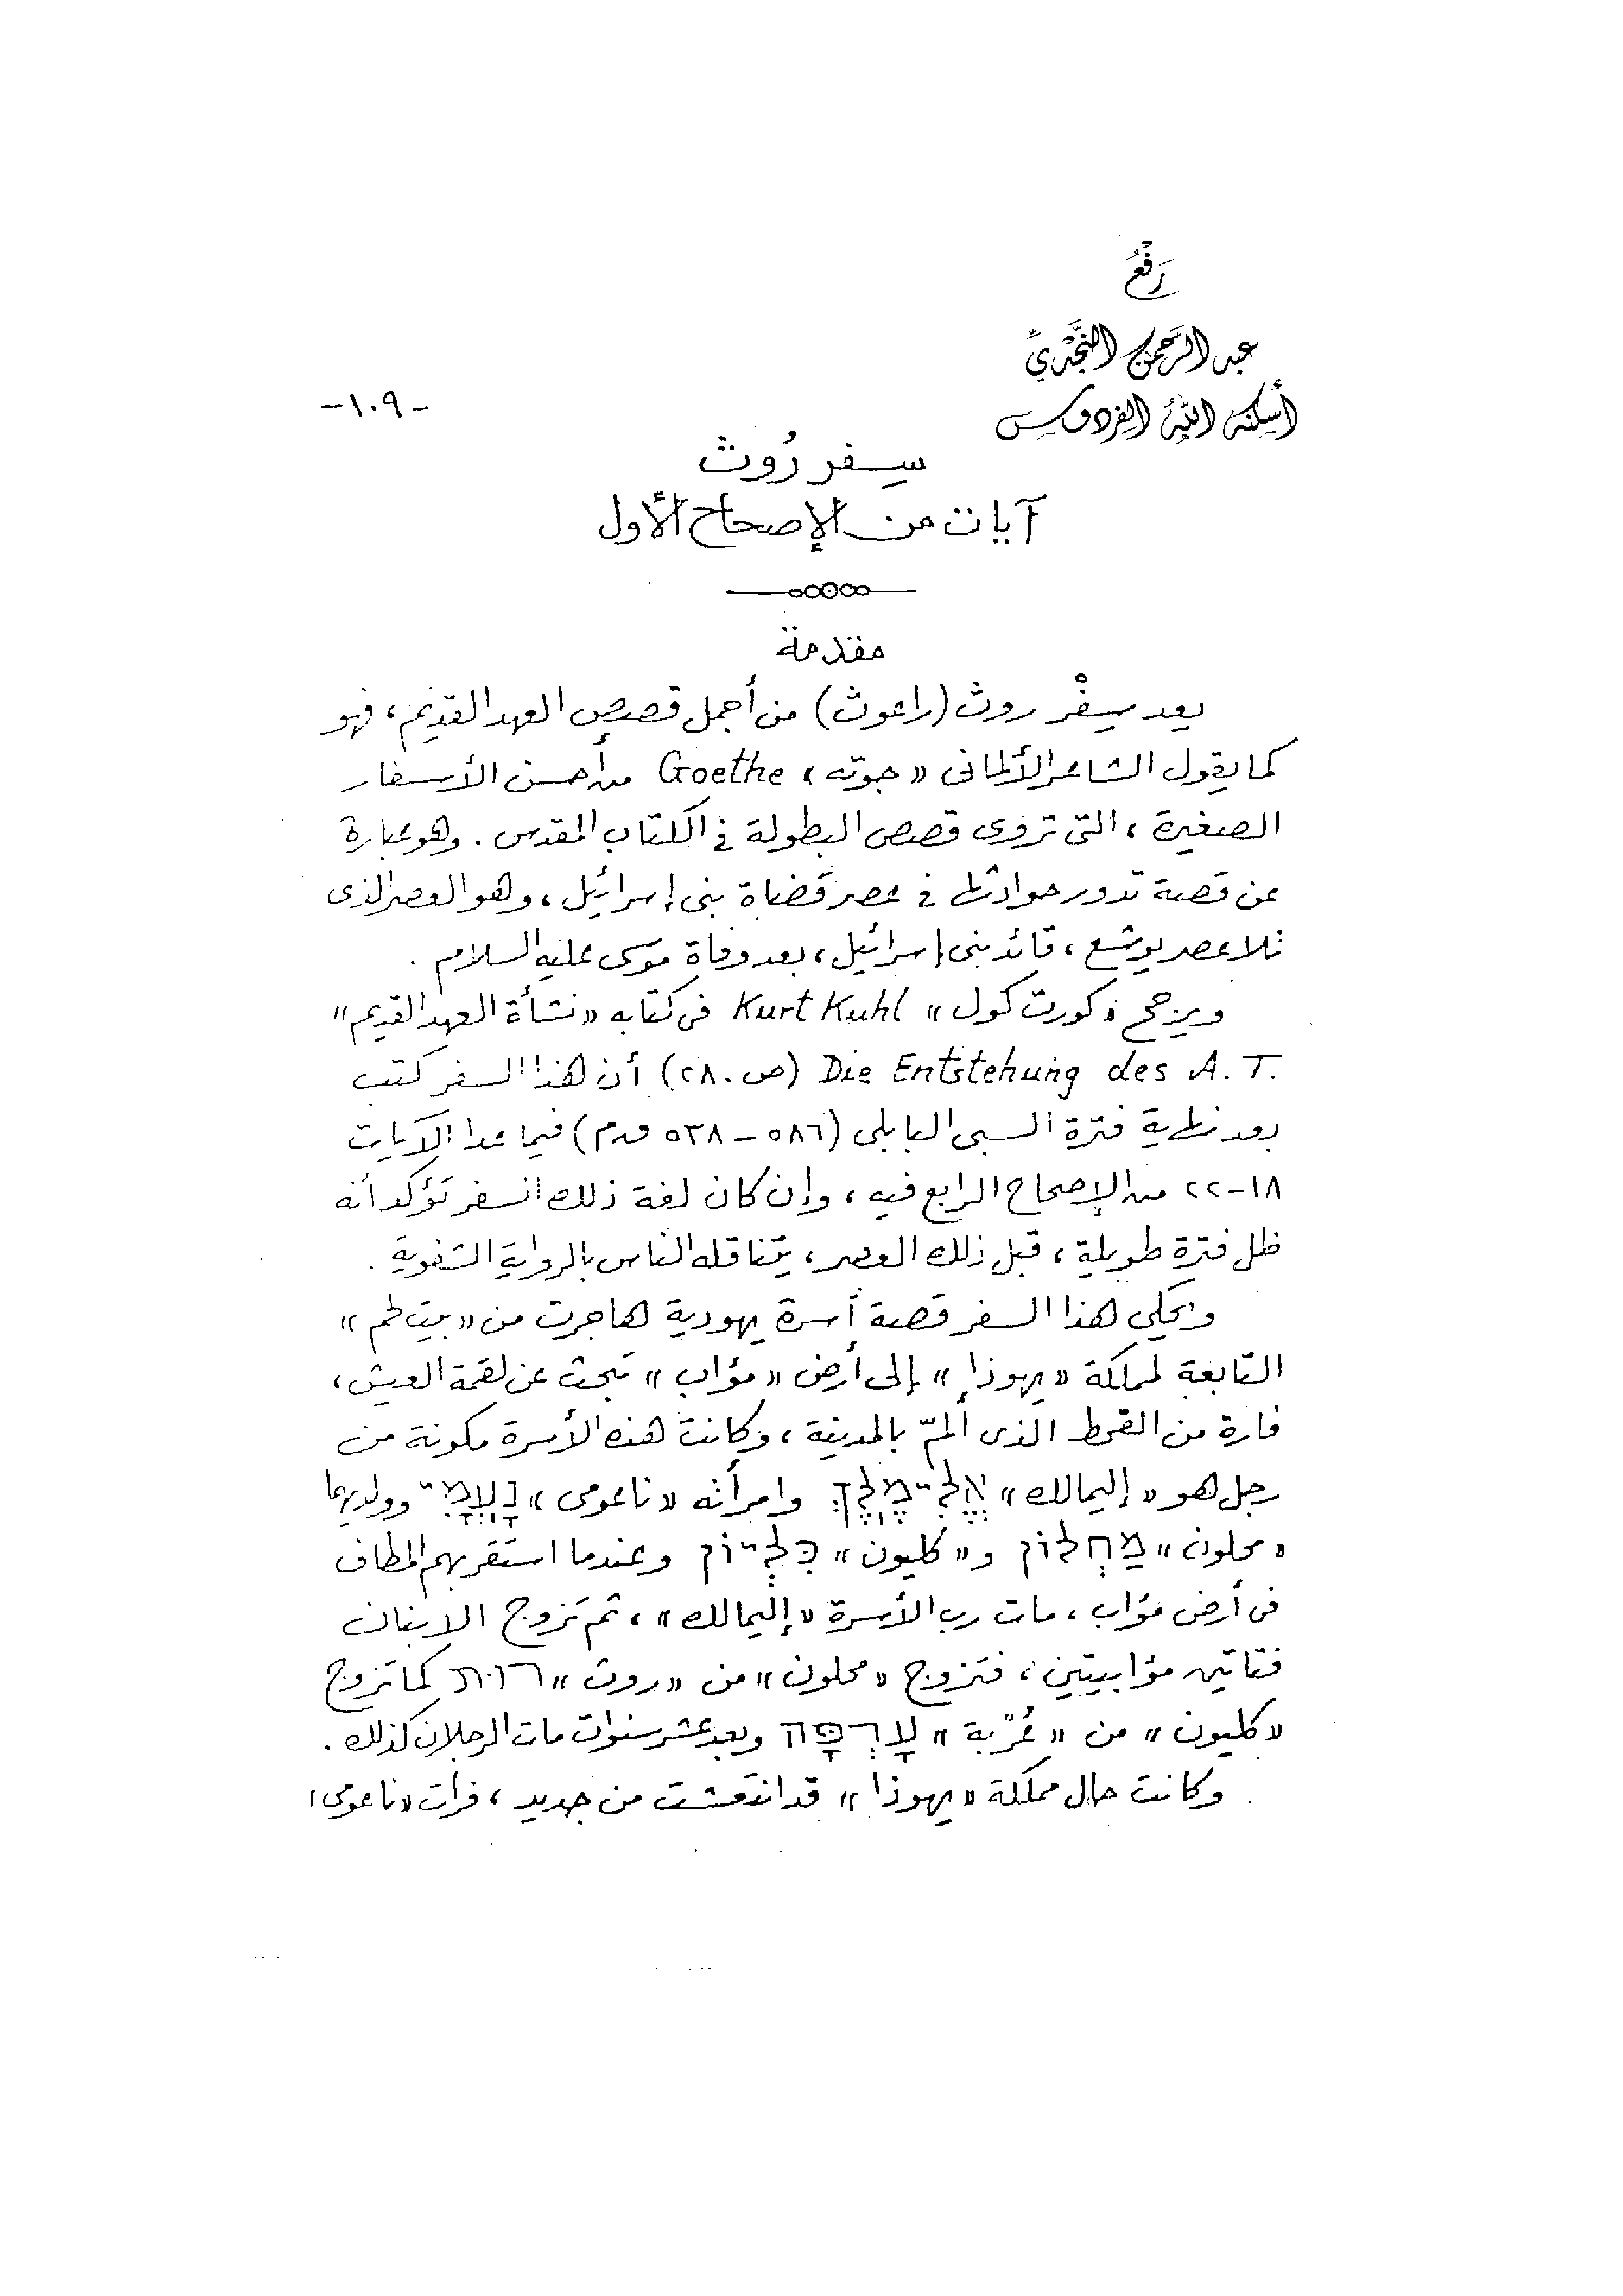 رَفْعُ
عبد الرَّحمن النَّجْديِّ
أسكنه اللهُ الفردوس
-١٠٩-
سِفر رُوث
آيات من الإصحاح الأول
مقدمة
يعد سِفْر روث (راعوث) من أجمل قصص العهد القديم، فهو
كما يقول الشاعر الألمانى «جوته» Goethe من أحسن الأسفار
الصغيرة، التى تروى قصص البطولة فى الكتاب المقدس. وهو عبارة
عن قصة تدور حوادثها فى عصر قضاة بنى إسرائيل، وهو العصر الذى
تلا عصر يوشع، قائد بنى إسرائيل، بعد وفاة موسى عليه السلام.
ويرجح «كورت كول» Kurt Kuhl فى كتابه «نشأة العهد القديم»
Die Entstehung des A. T. (ص ٢٨٠) أن هذا السفر كتب
بعد نهاية فترة السبى البابلى (٥٨٦ – ٥٣٨ ق.م) فيما عدا الآيات
١٨-٢٢ من الإصحاح الرابع فيه، وإن كان لغة ذلك السفر تؤكد أنه
ظل فترة طويلة، قبل ذلك العصر، يتناقله الناس بالرواية الشفوية.
ويحكى هذا السفر قصة أسرة يهودية هاجرت من «بيت لحم»
التابعة لمملكة «يهوذا» إلى أرض «مؤاب» تبحث عن لقمة العيش،
فارة من القحط الذى ألمّ بالمدينة، وكانت هذه الأسرة مكونة من
رجل هو «إليمالك» אֱלִימֶלֶךְ وامرأته «ناعومى» נָעֳמִי وولديهما
«محلون» מַחְלוֹן و«كليون» כִּלְיוֹן وعندما استقر بهم المطاف
فى أرض مؤاب، مات رب الأسرة «إليمالك»، ثم تزوج الابنان
فتاتين مؤابيتين، فتزوج «محلون» من «روث» רוּת كما تزوج
«كليون» من «عُرْبة» עָרְפָּה وبعد عشر سنوات مات الرجلان كذلك.
وكانت حال مملكة «يهوذا» قد انتعشت من جديد، فرأت «ناعومى»